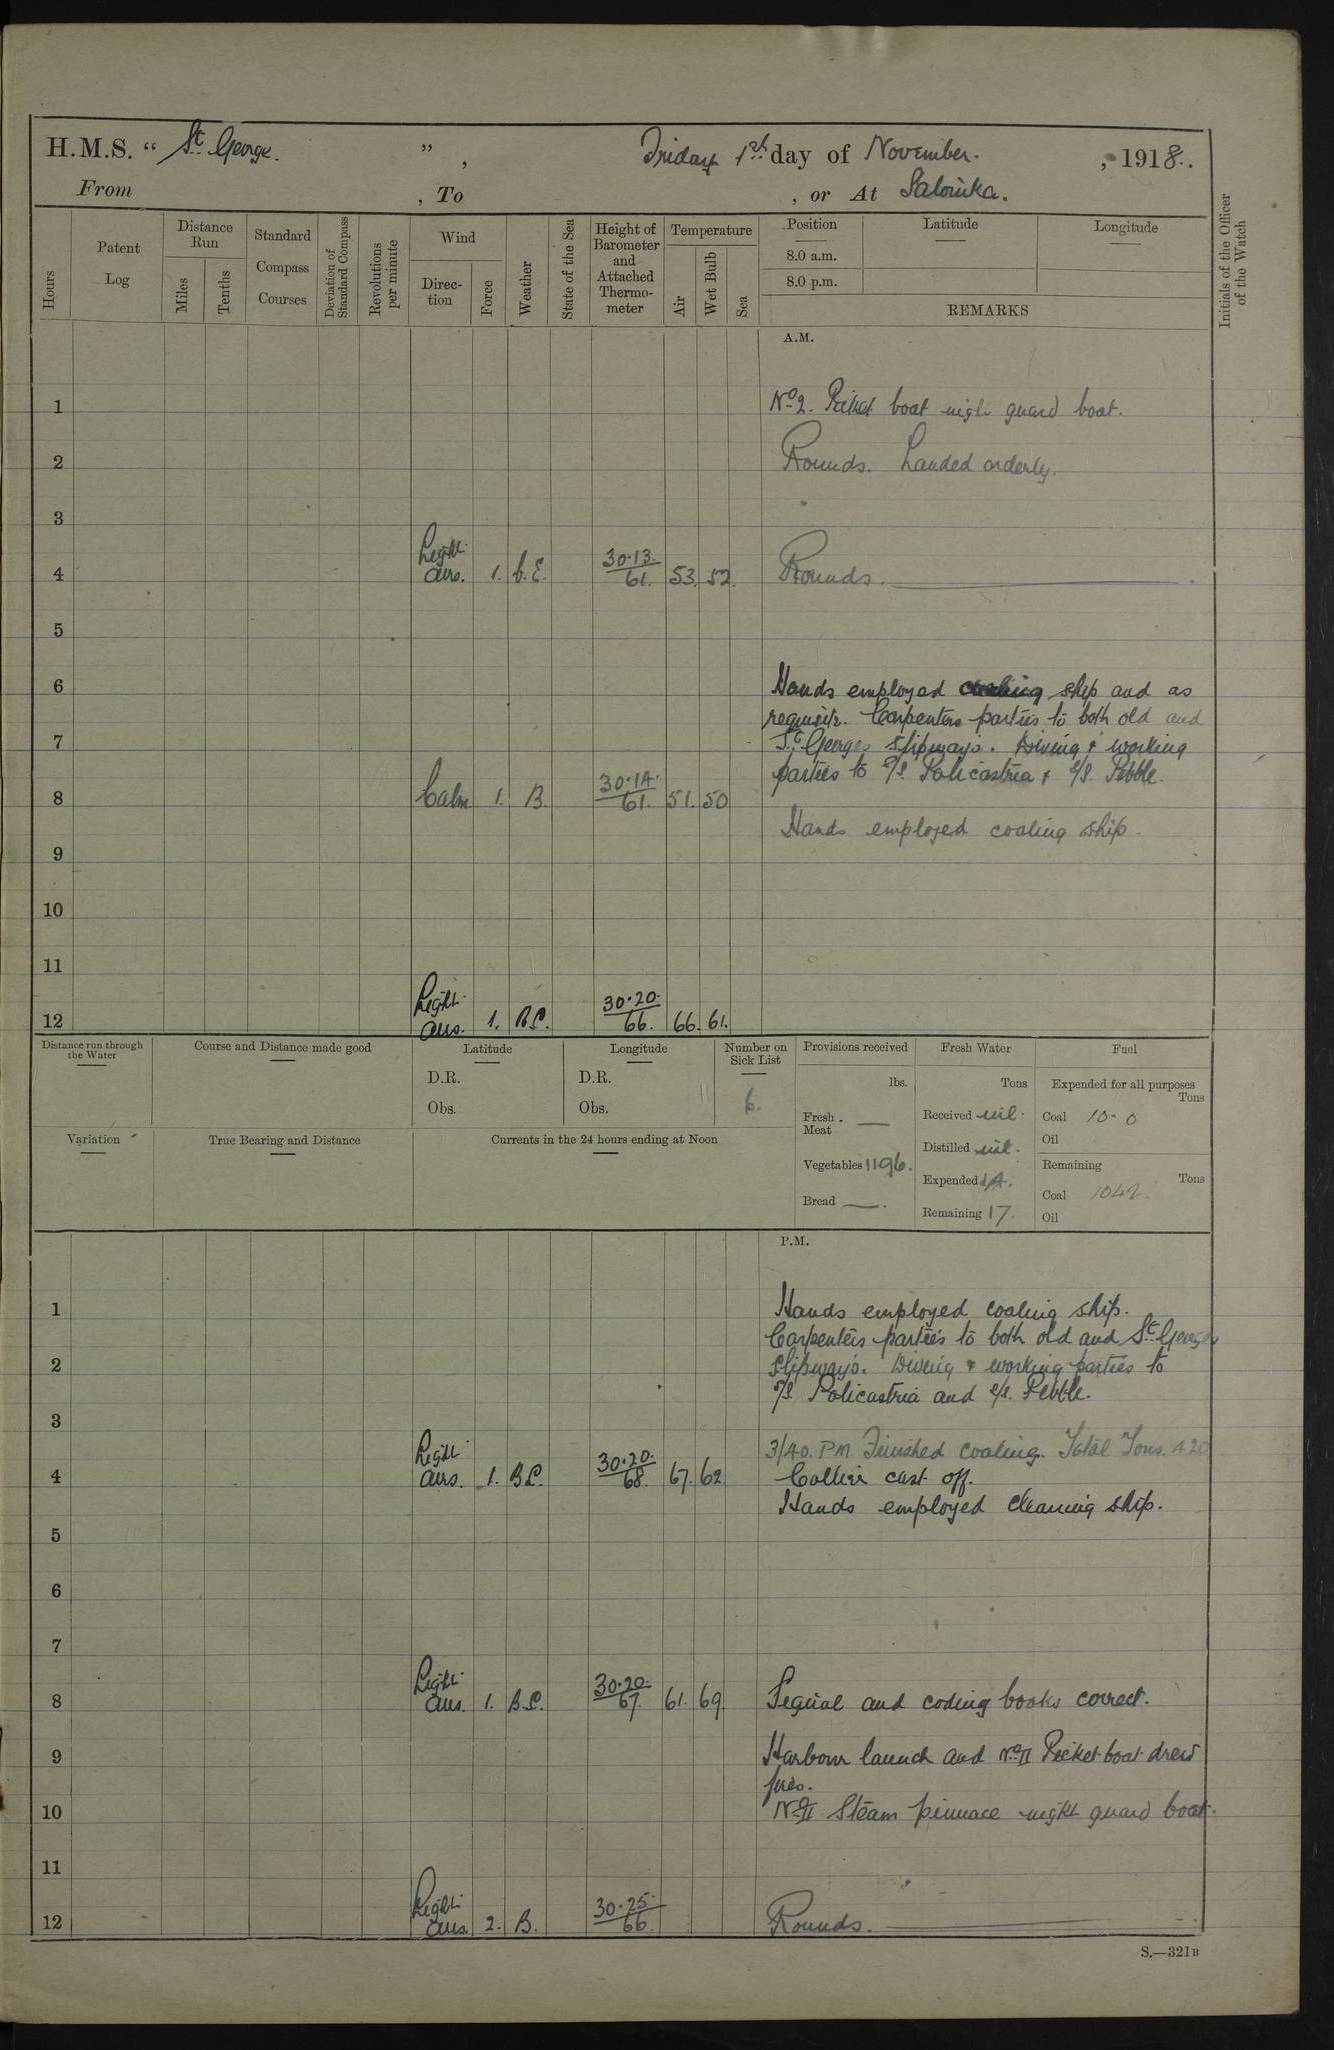 H.M.S. “ St George. ” , Friday 1st day of November. , 1918.
From , To , or At Salonika.
Hours
Patent Log
Distance Run
Miles
Tenths
Standard Compass Courses
Deviation of Standard Compass
Revolutions per minute
Wind
Direction
Force
Weather
State of the Sea
Height of Barometer and Attached Thermometer
Temperature
Air
Wet Bulb
Sea
Position
8.0 a.m.
8.0 p.m.
Latitude
Longitude
REMARKS
Initials of the Officer of the Watch
A.M.
1 No 2. Picket boat night guard boat.
2 Rounds. Landed orderly.
3
4 Light airs. 1. 30.13. 61. 53. 52. Rounds.
5
6 Hands employed ship and as
requisite. Carpenters parties to both old and
7 St Georges slipways. Diving & working
parties to S/S. Policastria & S/S. Pebble.
8 Calm 1. B. 30.14. 61. 51. 50
Hands employed coaling ship.
9
10
11
12 Light airs. 1. B.C. 30.20. 66. 66. 61.
Distance run through the Water
Course and Distance made good
Latitude
D.R.
Obs.
Longitude
D.R.
Obs.
Number on Sick List
6.
Provisions received
lbs.
Fresh Meat —
Vegetables 1196.
Bread —.
Fresh Water
Tons
Received nil.
Distilled nil.
Expended 14.
Remaining 17.
Fuel
Expended for all purposes
Tons
Coal 10-0
Oil
Remaining
Tons
Coal 1042.
Oil
Variation
True Bearing and Distance
Currents in the 24 hours ending at Noon
P.M.
1 Hands employed coaling ship.
Carpenters parties to both old and St Georges
2 slipways. Diving & working parties to
S/S. Policastria and S/S. Pebble.
3
3/40. PM. Finished coaling. Total Tons. 420
4 Light airs. 1. B.C. 30.20. 68. 67. 62 Collier cast off.
Hands employed cleaning ship.
5
6
7
8 Light airs. 1. B.C. 30.20. 67. 61. 69. Signal and coding books correct.
9 Harbour launch and No II Picket boat drew
fires.
10 No II Steam pinnace night guard boat.
11
12 Light airs. 2. B. 30.25. 66. Rounds.
S.—321B